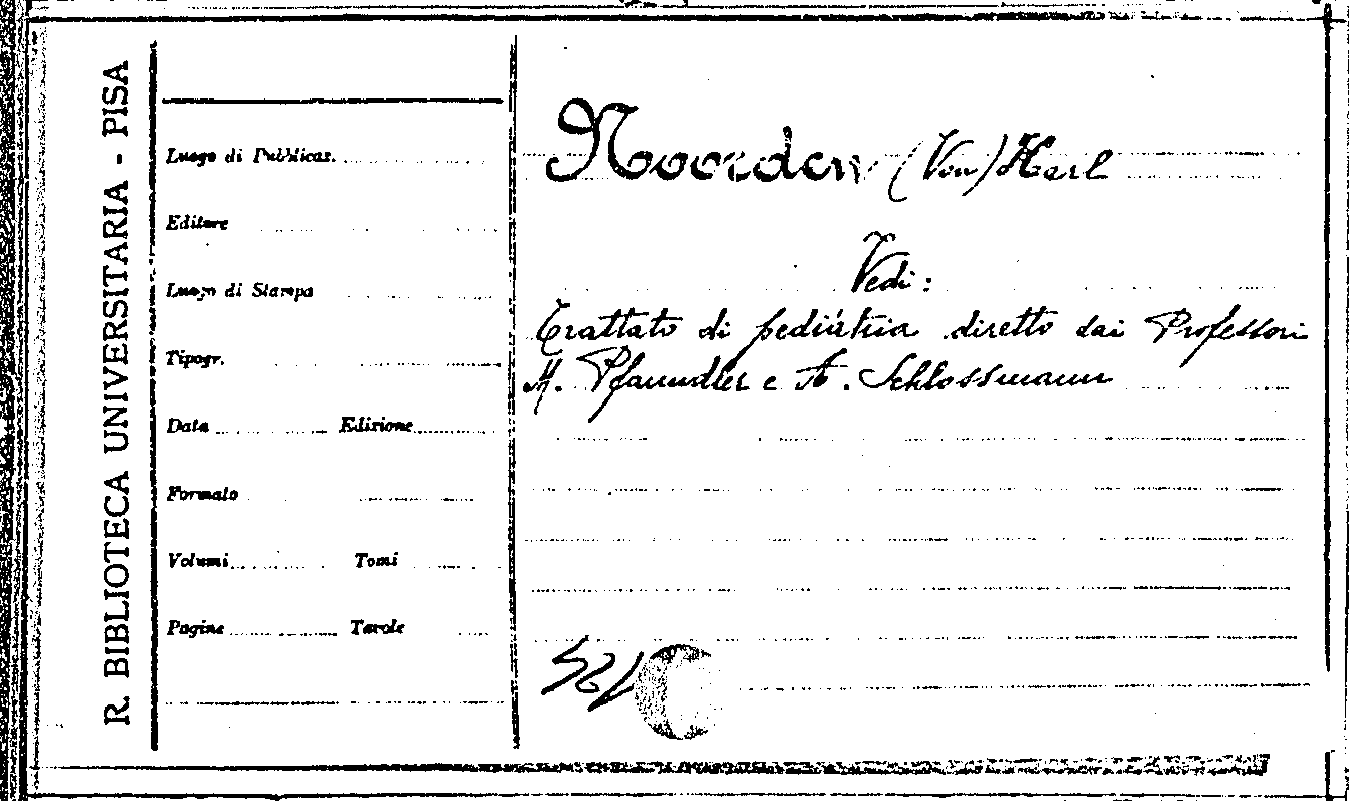 R. BIBLIOTECA UNIVERSITARIA - PISA
Luogo di Pubblicaz.
Editore
Luogo di Stampa
Tipogr.
Data Edizione
Formato
Volumi Tomi
Pagine Tavole
Noorden (Von) Karl
Vedi:
Trattato di pediatria diretto dai Professori
M. Pfaundler e A. Schlossmann